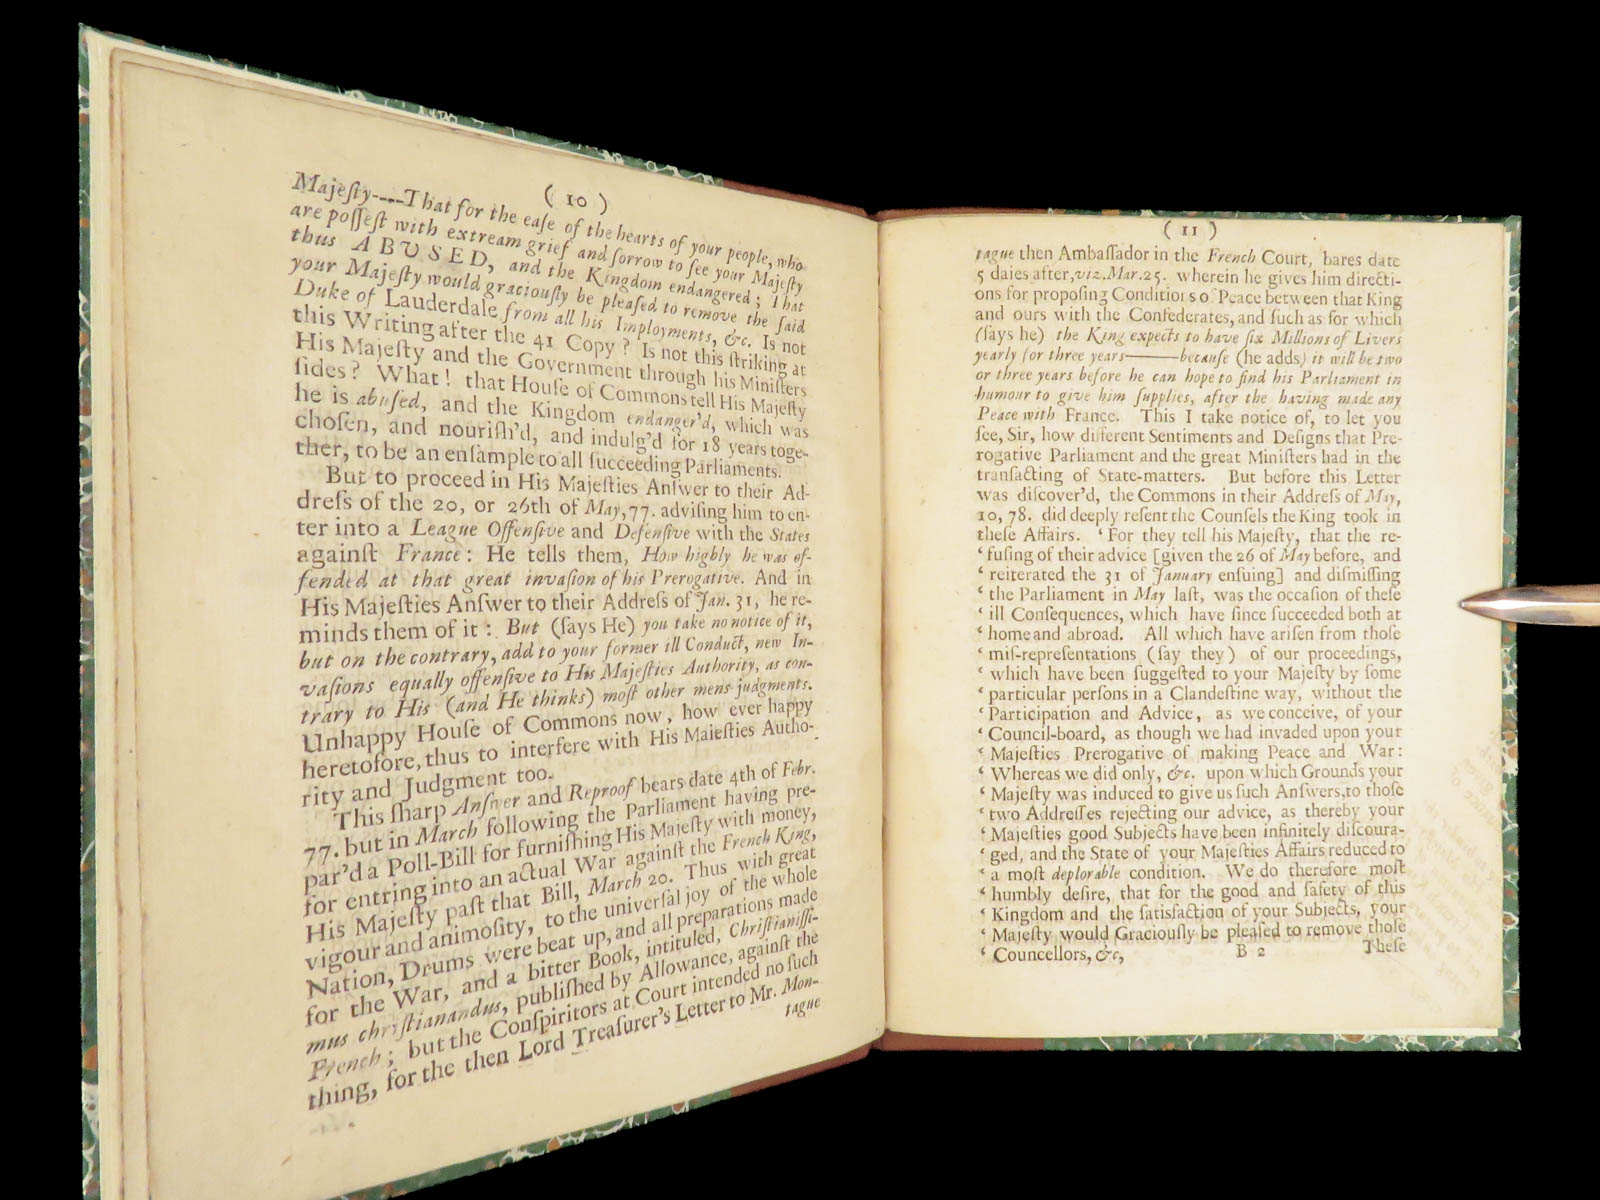 ( 10 )
Majeſty----That for the eaſe of the hearts of your people, who
are poſſeſt with extream grief and ſorrow to ſee your Majeſty
thus ABUSED, and the Kingdom endangered; That
your Majeſty would graciouſly be pleaſed to remove the ſaid
Duke of Lauderdale from all his Imployments, &c. Is not
this Writing after the 41 Copy? Is not this ſtriking at
His Majeſty and the Government through his Miniſters
ſides? What! that Houſe of Commons tell His Majeſty
he is abuſed, and the Kingdom endanger'd, which was
choſen, and nouriſh'd, and indulg'd for 18 years toge-
ther, to be an enſample to all ſucceeding Parliaments.
But to proceed in His Majeſties Anſwer to their Ad-
dreſs of the 20, or 26th of May, 77. adviſing him to en-
ter into a League Offenſive and Defenſive with the States
againſt France: He tells them, How highly he was of-
fended at that great invaſion of his Prerogative. And in
His Majeſties Anſwer to their Addreſs of Jan. 31, he re-
minds them of it: But (ſays He) you take no notice of it,
but on the contrary, add to your former ill Conduct, new In-
vaſions equally offenſive to His Majeſties Authority, as con-
trary to His (and He thinks) moſt other mens judgments.
Unhappy Houſe of Commons now, how ever happy
heretofore, thus to interfere with His Maieſties Autho-
rity and Judgment too.
This ſharp Anſwer and Reproof bears date 4th of Febr.
77. but in March following the Parliament having pre-
par'd a Poll-Bill for furniſhing His Majeſty with money,
for entring into an actual War againſt the French King,
His Majeſty paſt that Bill, March 20. Thus with great
vigour and animoſity, to the univerſal joy of the whole
Nation, Drums were beat up, and all preparations made
for the War, and a bitter Book, intituled, Chriſtianiſſi-
mus chriſtianandus, publiſhed by Allowance, againſt the
French; but the Conſpiritors at Court intended no ſuch
thing, for the then Lord Treaſurer's Letter to Mr. Mon-
tague
( 11 )
tague then Ambaſſador in the French Court, bares date
5 daies after, viz. Mar. 25. wherein he gives him directi-
ons for propoſing Conditions of Peace between that King
and ours with the Confederates, and ſuch as for which
(ſays he) the King expects to have ſix Millions of Livers
yearly for three years——becauſe (he adds) it will be two
or three years before he can hope to find his Parliament in
humour to give him ſupplies, after the having made any
Peace with France. This I take notice of, to let you
ſee, Sir, how different Sentiments and Deſigns that Pre-
rogative Parliament and the great Miniſters had in the
tranſacting of State-matters. But before this Letter
was diſcover'd, the Commons in their Addreſs of May,
10, 78. did deeply reſent the Counſels the King took in
theſe Affairs. ‘ For they tell his Majeſty, that the re-
‘ fuſing of their advice [given the 26 of May before, and
‘ reiterated the 31 of January enſuing] and diſmiſſing
‘ the Parliament in May laſt, was the occaſion of theſe
‘ ill Conſequences, which have ſince ſucceeded both at
‘ home and abroad. All which have ariſen from thoſe
‘ miſ-repreſentations (ſay they) of our proceedings,
‘ which have been ſuggeſted to your Majeſty by ſome
‘ particular perſons in a Clandeſtine way, without the
‘ Participation and Advice, as we conceive, of your
‘ Council-board, as though we had invaded upon your
‘ Majeſties Prerogative of making Peace and War:
‘ Whereas we did only, &c. upon which Grounds your
‘ Majeſty was induced to give us ſuch Anſwers, to thoſe
‘ two Addreſſes rejecting our advice, as thereby your
‘ Majeſties good Subjects have been infinitely diſcoura-
‘ ged, and the State of your Majeſties Affairs reduced to
‘ a moſt deplorable condition. We do therefore moſt
‘ humbly deſire, that for the good and ſafety of this
‘ Kingdom and the ſatisfaction of your Subjects, your
‘ Majeſty would Graciouſly be pleaſed to remove thoſe
‘ Councellors, &c,
B 2 Theſe